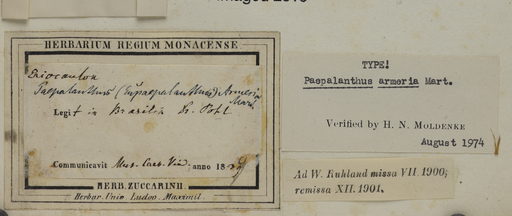 HERBARIUM REGIUM MONACENSE
Eriocaulon
Paepalanthus (Eupaepalanthus) Armeria
Mart.
Legit in Brasilia Dr. Pohl
Communicavit Mus. Caes. Vind. anno 18
HERB. ZUCCARINII.
Herbar. Univ. Ludov. Maximil.
TYPE!
Paepalanthus armeria Mart.
Verified by H. N. MOLDENKE
August 1974
Ad W. Ruhland missa VII. 1900;
remissa XII. 1901.